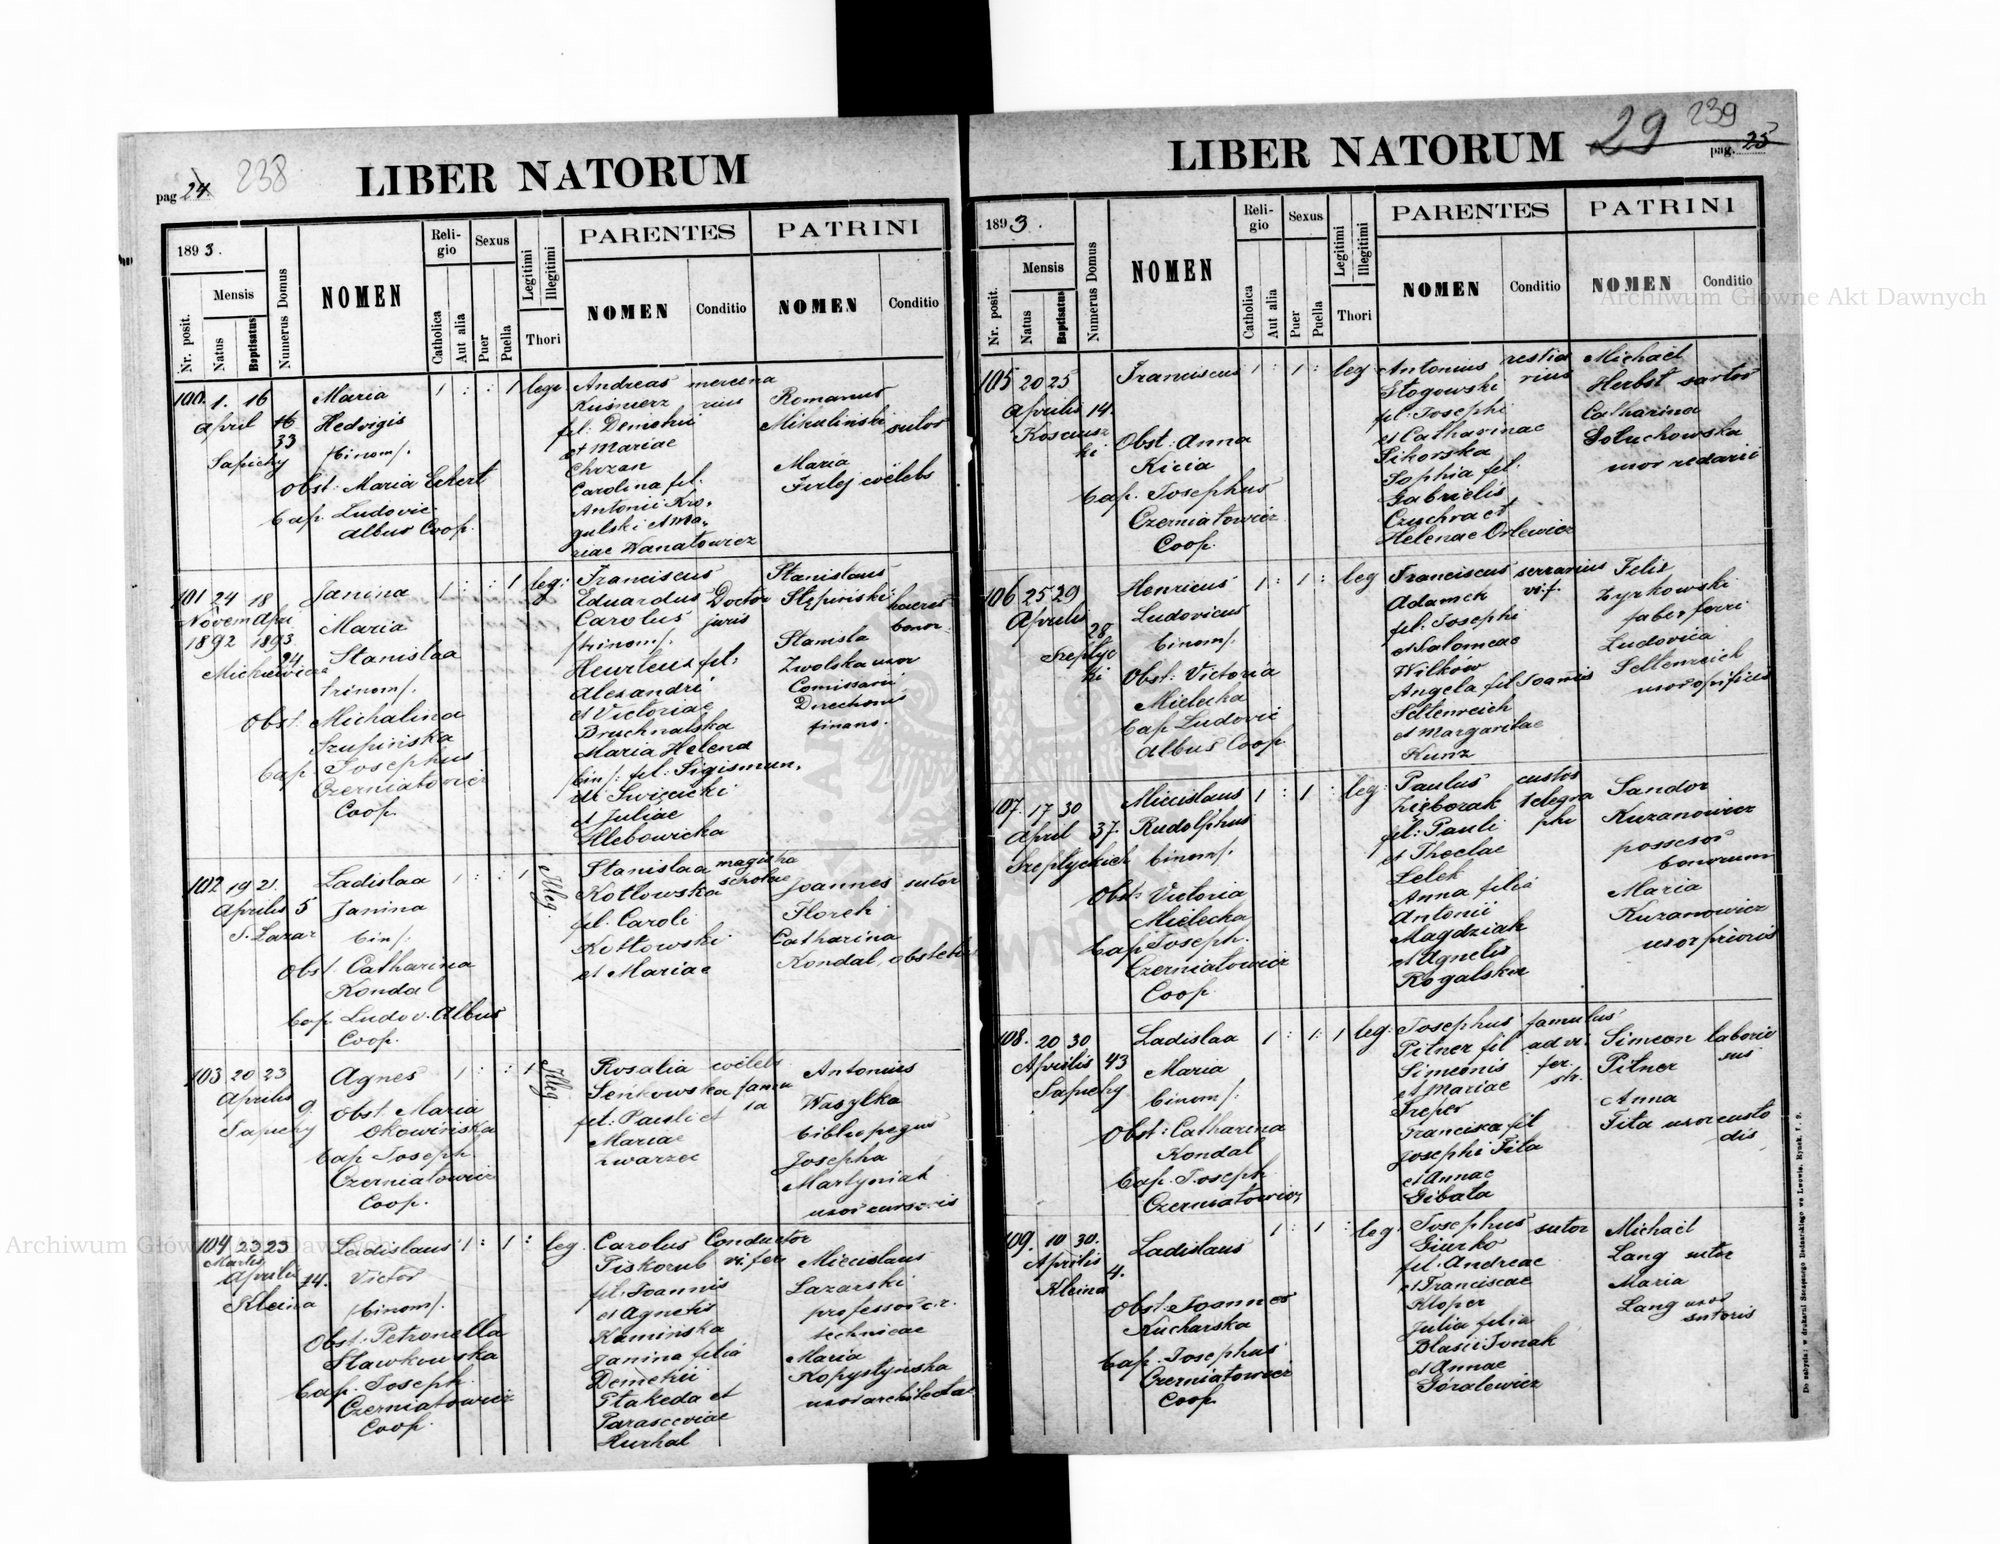 pag 24. 238
LIBER NATORUM
1893.
Nr. posit.
Mensis
Natus
Baptisatus
Numerus Domus
NOMEN
Religio
Catholica
Aut alia
Sexus
Puer
Puella
Legitimi
Illegitimi
Thori
PARENTES
NOMEN
Conditio
PATRINI
NOMEN
Conditio
100. 1. 16
April 16
33
Sapiehy
Maria
Hedvigis
/binom/.
Obst: Maria Eckert
Bap. Ludovic.
Albus Coop.
1 : : 1 legi
Andreas mercena
Kuśnierz rius
fil: Demetrii
et Mariae
Chrzan
Carolina fil.
Antonii Kro-
gulski et Ma-
riae Wanatowicz
Romanus
Mikulinski sutor
Maria
Firlej coëlebs
101 24 18
Novem Apri
1892 1893
24
Mickiewicza
Janina
Maria
Stanislaa
trinom/.
Obst. Michalina
Szupińska
Bap. Josephus
Czerniatowicz
Coop.
1 : : 1 leg:
Franciscus
Eduardus Doctor
Carolus juris
/trinom/.
Heurteux fil:
Alexandri
et Victoriae
Bruchnalska
Maria Helena
bin/: fil: Sigismun,
di Swięcicki
et Juliae
Hlebowicka
Stanislaus
Stępiński haeres
bonor
Stanisla
Zwolska uxor
Comissarii
Direchonis
finans.
102 19 21.
Aprilis 5
S. Lazar
Ladislaa
Janina
bin/.
Obst. Catharina
Kondal
Bap. Ludov. Albus
Coop.
1 : : 1 Illeg.
Stanislaa magistra
Kotlowska scholae
fil. Caroli
Kotlowski
et Mariae
Joannes sutor
Florek
Catharina
Kondal, obstetrix
103 20 23
Aprilis
9.
Sapiehy
Agnes
Obst. Maria
Okowińska
Bap. Joseph.
Czerniatowicz
Coop.
1 : : 1 Illeg.
Rosalia coëlebs
Seńkowska famu
fil: Pauli et la
Mariae
Zwarzec
Antonius
Waszylka
bibliopegus
Josepha
Martyniak
uxor cursoris
104 23 23
Martii
Aprilis 14.
Kleina
Ladislaus
Victor
/binom/.
Obst: Petronella
Sławkowska
Bap. Joseph
Czerniatowicz
Coop.
1 : 1 : leg.
Carolus Conductor
Piskorub vi. fer.
fil: Joannis
et Agnetis
Kamińska
Janina filia
Demetrii
Ptakeda et
Parasceviae
Hurhal
Miecislaus
Lazarski
professor c. r.
technicae
Maria
Kopystyńska
uxor architectae
29 239
pag. 25
LIBER NATORUM
1893.
Nr. posit.
Mensis
Natus
Baptisatus
Numerus Domus
NOMEN
Religio
Catholica
Aut alia
Sexus
Puer
Puella
Legitimi
Illegitimi
Thori
PARENTES
NOMEN
Conditio
PATRINI
NOMEN
Conditio
105 20 25
Aprilis 14.
Kosciusz
ki
Franciscus
Obst: Anna
Kicia
Bap. Josephus
Czerniatowicz
Coop.
1 : 1 : leg
Antonius restia
Głogowski rius
fil: Josephi
et Catharinae
Sikorska
Sophia fil.
Gabrielis
Czuchra et
Helenae Orlewicz
Michaël
Herbst sartor
Catharina
Sołuchowska
uxor redarii
106 25 29
Aprilis
28
Szeptyc
ki
Henricus
Ludovicus
binom/.
Obst: Victoria
Mielecka
Bap Ludovic
Albus Coop.
1 : 1 : leg
Franciscus serrarius
Adamek vi. f.
fil: Josephi
et Salomeae
Wilków
Angela fil Joannis
Seltenreich
et Margaritae
Kunz
Felix
Zyrkowski
faber ferri
Ludovica
Seltenreich
uxor opificis
107. 17 30
April 37.
Szeptyckich
Miecislaus
Rudolphus
binom/.
Obst: Victoria
Mielecka
Bap. Joseph.
Czerniatowicz
Coop.
1 : 1 : leg:
Paulus custos
Zięborak telegra
fil: Pauli phi
et Theclae
Lelek
Anna filia
Antonii
Magdziak
et Agnetis
Rogalska
Sandor
Kuzanowicz
possessor
bonorum
Maria
Kuzanowicz
uxor prioris
108. 20 30
Aprilis 43
Sapiehy
Ladislaa
Maria
binom/:
Obst: Catharina
Kondal
Bap. Joseph
Czerniatowicz
1 : 1: 1 leg:
Josephus famulus
Pitner fil ad vi.
Simeonis fer.
et Mariae str.
Treper
Francisca fil
Josephi Fita
et Annae
Gibala
Simeon laborio
Pitner sus
Anna
Fita uxor custo
dis
109. 10 30.
Aprilis
4.
Kleina
Ladislaus
Obst: Joannes
Kucharska
Bap. Josephus
Czerniatowicz
Coop
1 : 1 : leg.
Josephus sutor
Giurko
fil. Andreae
et Franciscae
Kloper
Julia filia
Blasii Jonak
et Annae
Góralewicz
Michaël
Lang sutor
Maria
Lang uxor
sutoris
Do nabycia: w drukarni Szczęsnego Bednarskiego we Lwowie, Rynek, l. 9.
Archiwum Główne Akt Dawnych
Archiwum Główne Akt Dawnych